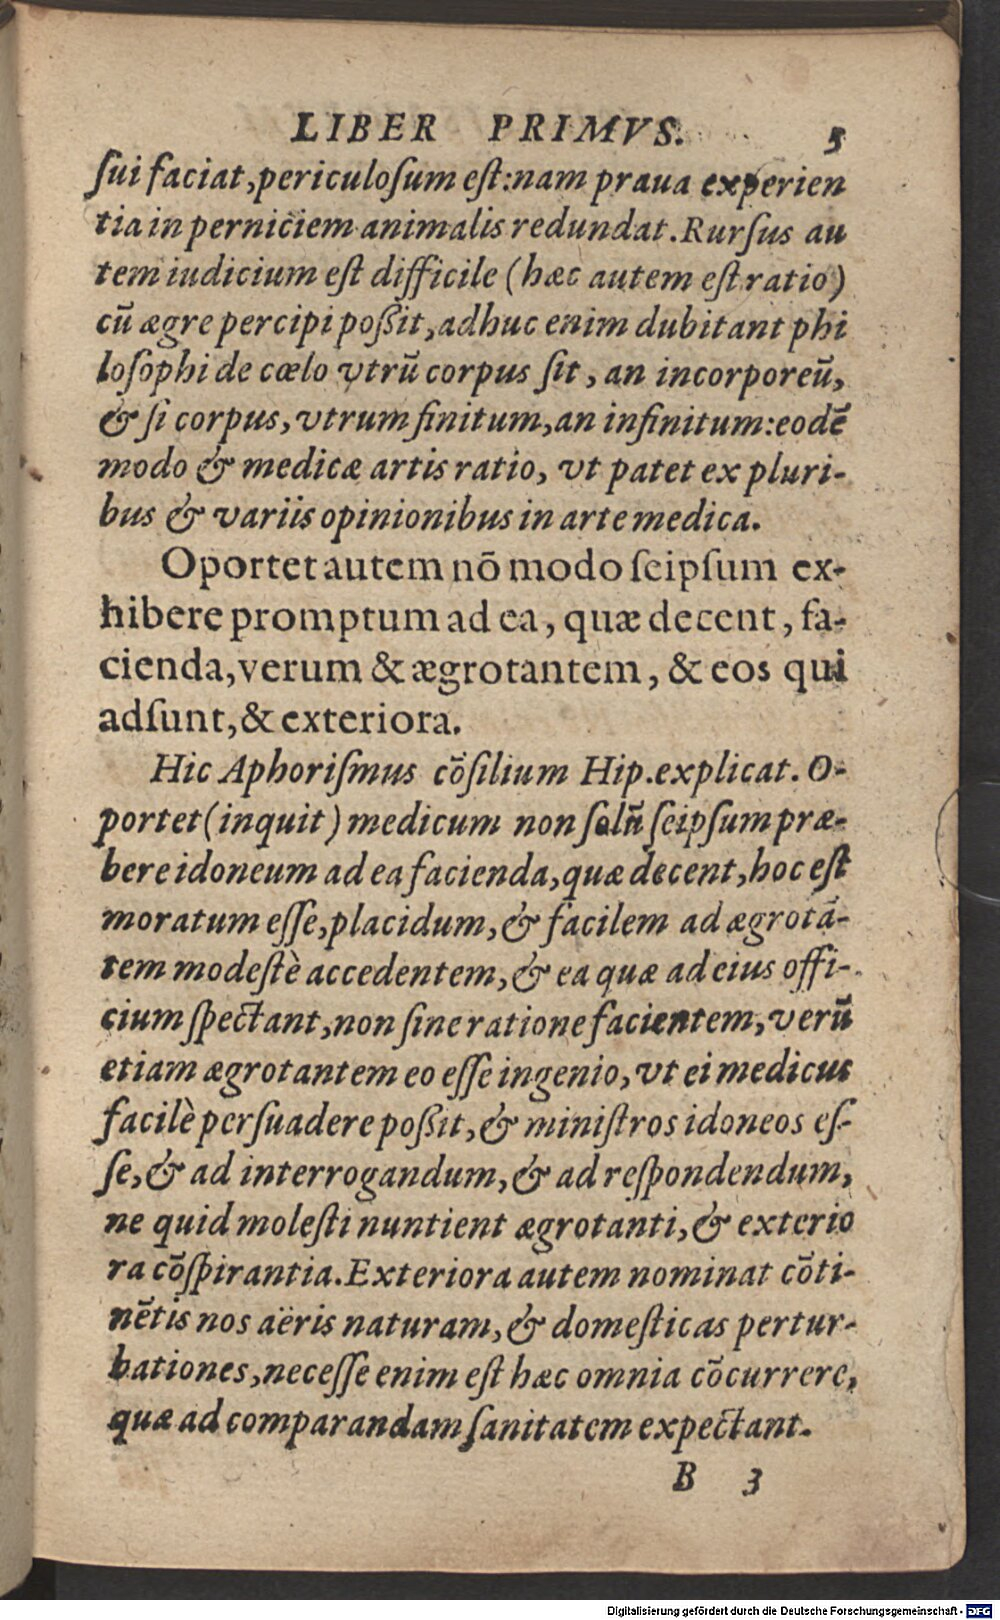 LIBER PRIMVS. 5
ſui faciat, periculoſum eſt: nam praua experien
tia in perniciem animalis redundat. Rurſus au
tem iudicium eſt difficile (hæc autem eſt ratio)
cū ægre percipi poßit, adhuc enim dubitant phi
loſophi de cœlo vtrū corpus ſit, an incorporeū,
& ſi corpus, vtrum finitum, an infinitum: eodē
modo & medicæ artis ratio, vt patet ex pluri-
bus & variis opinionibus in arte medica.
Oportet autem nō modo ſeipſum ex-
hibere promptum ad ea, quæ decent, fa-
cienda, verum & ægrotantem, & eos qui
adſunt, & exteriora.
Hic Aphoriſmus cōſilium Hip. explicat. O-
portet (inquit) medicum non ſolū ſeipſum præ-
bere idoneum ad ea facienda, quæ decent, hoc eſt
moratum eſſe, placidum, & facilem ad ægrotā-
tem modeſtè accedentem, & ea quæ ad eius offi-
cium ſpectant, non ſine ratione facientem, verū
etiam ægrotantem eo eſſe ingenio, vt ei medicus
facilè perſuadere poßit, & miniſtros idoneos eſ-
ſe, & ad interrogandum, & ad reſpondendum,
ne quid moleſti nuntient ægrotanti, & exterio
ra cōſpirantia. Exteriora autem nominat cōti-
nētis nos aëris naturam, & domeſticas pertur-
bationes, neceſſe enim eſt hæc omnia cōcurrere,
quæ ad comparandam ſanitatem expectant.
B 3
Digitalisierung gefördert durch die Deutsche Forschungsgemeinschaft - DFG